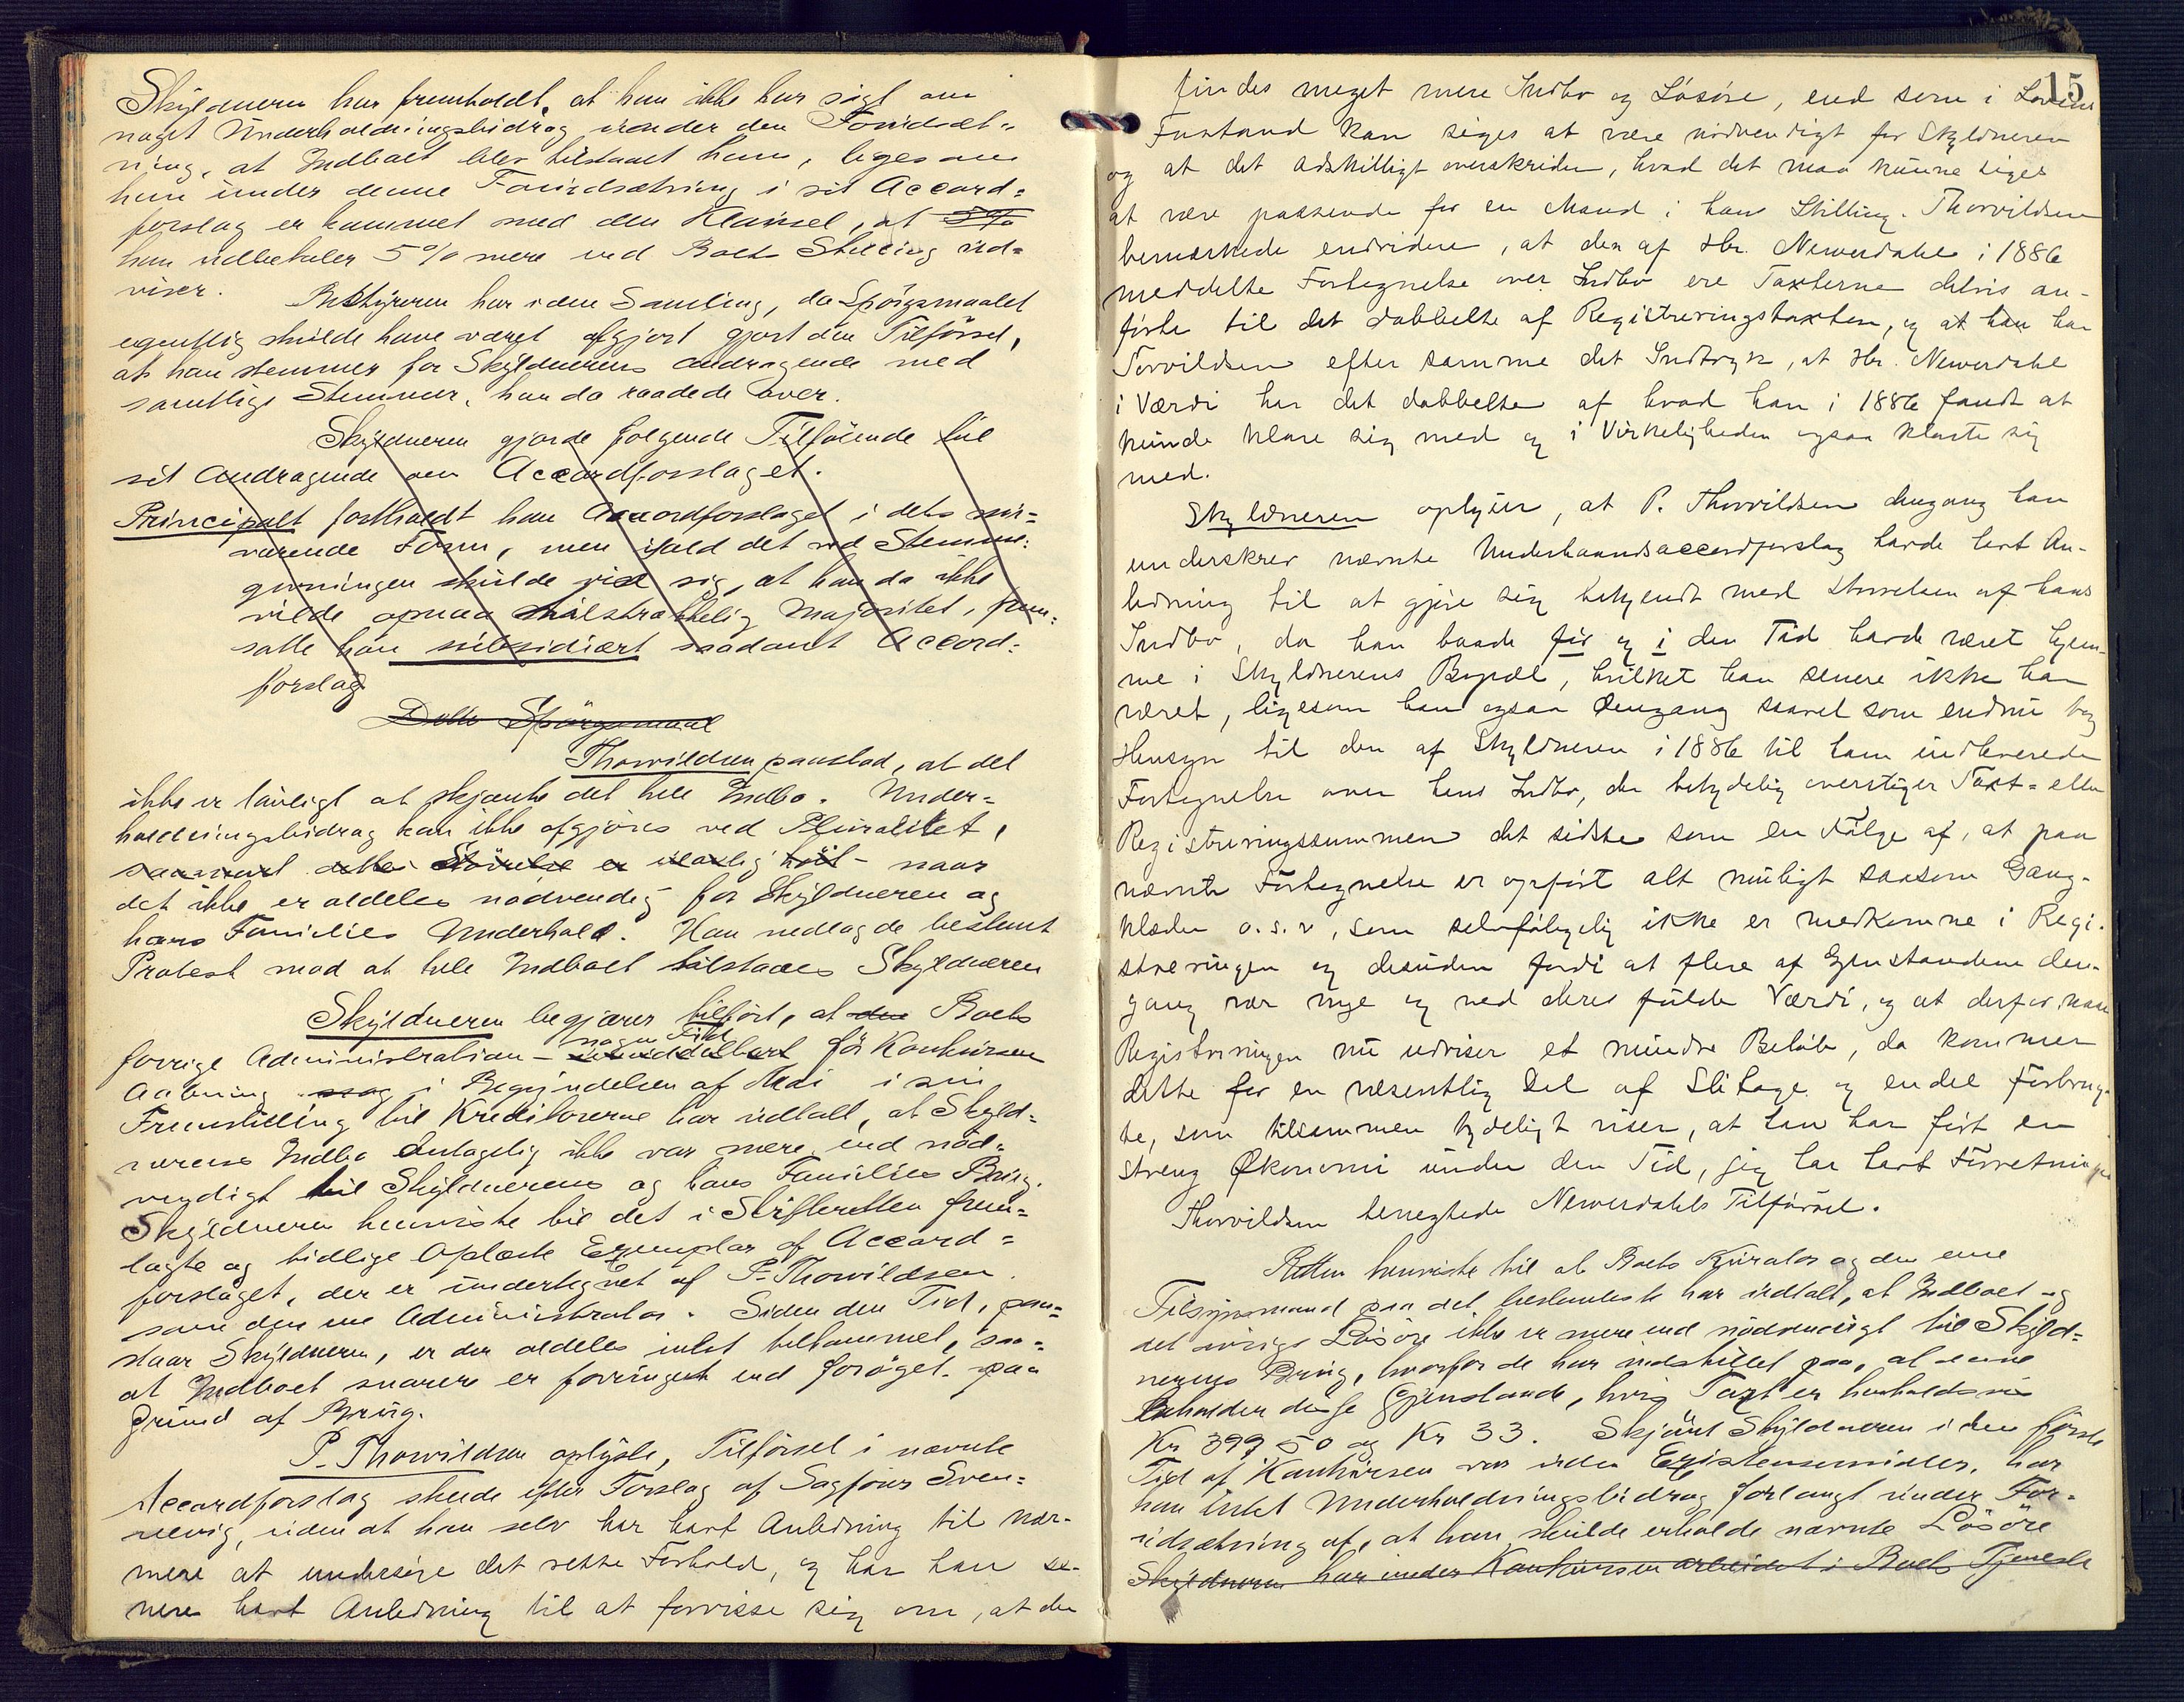 Skyldneren har fremholdt, at han ikke har søgt om
noget Underholdningsbidrag under den Forudsæt-
ning, at Indboet blev tilstaaet ham, ligesom
han under denne Forudsætning i sit Accord-
forslag er kommet med den Klausul, at 5%
han udbetaler 5% mere end Boets Stilling ud-
viser. Bestyreren har i den Samling, da Spørgsmaalet
egentlig skulde have været afgjort gjort den Tilførsel,
at han stemmer for Skyldnerens Andragende med
samtlige Stemmer, han da raadede over.
Skyldneren gjorde følgende Tilføiende til
sit Andragende om Accordforslaget.
Principalt fastholdt han Accordforslaget i dets nu-
værende Form, men ifald det ved Stemme-
givningen skulde vise sig, at han da ikke
vilde opnaa tilstrækkelig Majoritet, frem-
satte han subsidiært saadant Accord-
forslag
Dette Spørgsmaal
Thorvildsen paastod, at det
ikke er lovligt at skjænke det hele Indbo. Under-
holdningsbidrag kan ikke afgjøres ved Pluralitet,
naar
det ikke er aldeles nødvendig for Skyldneren og
hans Families Underhold. Han nedlagde bestemt
Protest mod at hele Indboet tilstaaes Skyldneren
Skyldneren begjærer tilført, at den Boets
forrige Administration – nogen Tid før Konkursens
Aabning i Begyndelsen af Mai i sin
Fremstilling til Kreditorerne har udtalt, at Skyld-
nerens Indbo antagelig ikke var mere end nød-
vendigt til Skyldnerens og hans Families Brug.
Skyldneren henviste til det i Skifteretten frem-
lagte og tidlige oplæste Exemplar af Accord-
forslaget, der er undertegnet af P. Thorvildsen
som den ene Administrator. Siden den Tid, paa-
staar Skyldneren, er der aldeles intet tilkommet, saa-
at Indboet snarere er forringet end forøget paa
Grund af Brug.
P. Thorvildsen oplyste, Tilførsel i nævnte
Accordforslag skede efter Forslag af Sagfører Sven-
uden at han selv har havt Anledning til nær-
mere at undersøge det rette Forhold, og har han se-
nere havt Anledning til at forvisse sig om, at der
15
findes meget mere Indbo og Løsøre, end som i Lovens
Forstand kan siges at være nødvendigt for Skyldneren
og at det adskilligt overskrider, hvad det maa kunne siges
at være passende for en Mand i hans Stilling. Thorvildsen
bemærkede endvidere, at den af Hr. Newerdahl i 1886
meddelte Fortegnelse over Indbo ere Taxterne delvis an-
førte til det dobbelte af Registreringstaxten, og at han har
Torvildsen efter samme det Indtryk, at Hr. Newerdahl
i Værdi har det dobbelte af hvad han i 1886 fandt at
kunde klare sig med og i Virkeligheden ogsaa klarte sig
med.
Skyldneren oplyser, at P. Thorvildsen dengang han
underskrev nævnte Underhaandsaccordforslag havde havt An-
ledning til at gjøre sig bekjendt med Størrelsen af hans
Indbo, da han baade før og i den Tid havde været hjem-
me i Skyldnerens Bopæl, hvilket han senere ikke har
været, ligesom han ogsaa dengang saavel som endnu tog
Hensyn til den af Skyldneren i 1886 til ham indleverede
Fortegnelse over hans Indbo, der betydelig overstiger Taxt- eller
Registreringssummen det sidste som en Følge af, at paa
nævnte Fortegnelse er opført alt muligt saasom Gang-
klæder o.s.v, som selvfølgelig ikke er medkomne i Regi-
streringen og desuden fordi at flere af Gjenstandene den-
gang var nye og ved deres fulde Værdi, og at derfor, naar
Registreringen nu udviser et mindre Beløb, da kommer
dette for en væsentlig Del af Slitage og endel forbrug-
te, som tilsammen tydeligt viser, at han har ført en
streng Økonomi under den Tid, jeg har havt Forretningen
Thorvildsen benegtede Newerdahls Tilførsel.
Retten henviste til at Boets Kurator og den ene
Tilsynsmand paa det bestemteste har udtalt, at Indboet og
det øvrige Løsøre ikke er mere end nødvendigt til Skyld-
nerens Brug, hvorfor de har indstillet paa, at denne
beholder disse Gjenstande, hvis Taxt er henholdsvis
Kr 399 50 og Kr 33. Skjønt Skyldneren i den første
Tid af Konkursen var uden Existensmidler, har
han intet Underholdningsbidrag forlangt under For-
udsætning af, at han skulde erholde nævnte Løsøre
Skyldneren har under Konkursen arbeidet i Boets Tjeneste